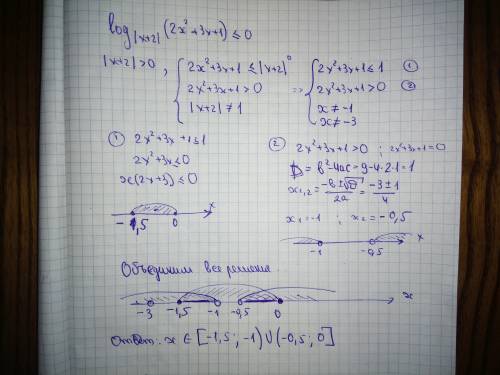 log|x+2| (2x²+3x+1) ≤ 0
|x+2|>0, { 2x²+3x+1 ≤ |x+2|⁰ ⇒ { 2x²+3x+1 ≤ 1 ①
2x²+3x+1>0 2x²+3x+1>0 ②
|x+2| ≠ 1 x ≠ -1
x ≠ -3
① 2x²+3x+1≤1
2x²+3x≤0
x(2x+3)≤0
-1,5 0 x
2. 2x²+3x+1>0 ; 2x²+3x+1=0
D=b²-4ac=9-4·2·1=1
x1,2 = -b±√D / 2a = -3±1 / 4
x1=-1 ; x2=-0,5
-1 -0,5 x
Объединим все решения
-3 -1,5 -1 -0,5 0 x
Ответ: x ∈ [-1,5 ; -1) ∪ (-0,5 ; 0]